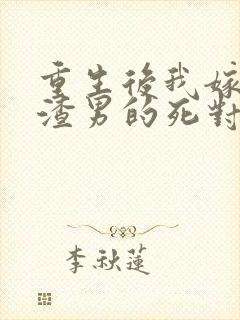 重生後我嫁
渣男的死對
李秋蓮